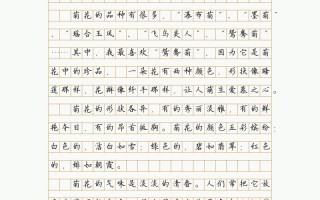 菊花的品种有很多，“瀑布菊”、“墨菊”
、“瑶台玉凤”、“飞鸟美人”、“鸳鸯菊”
……其中，我最喜欢“鸳鸯菊”，因为它是菊
花中的珍品，一朵花有两种颜色，形状像睡
莲那样，花瓣像纤手那样，让人萌生爱慕之心。
菊花的形状各异，有的秀丽淡雅，有的鲜
艳夺目，有的昂首挺胸。菊花的颜色五彩缤纷：
白色的，洁白如雪；绿色的，碧如翡翠；红色
的，燦如朝霞。
菊花的气味是淡淡的清香。人们常把它放